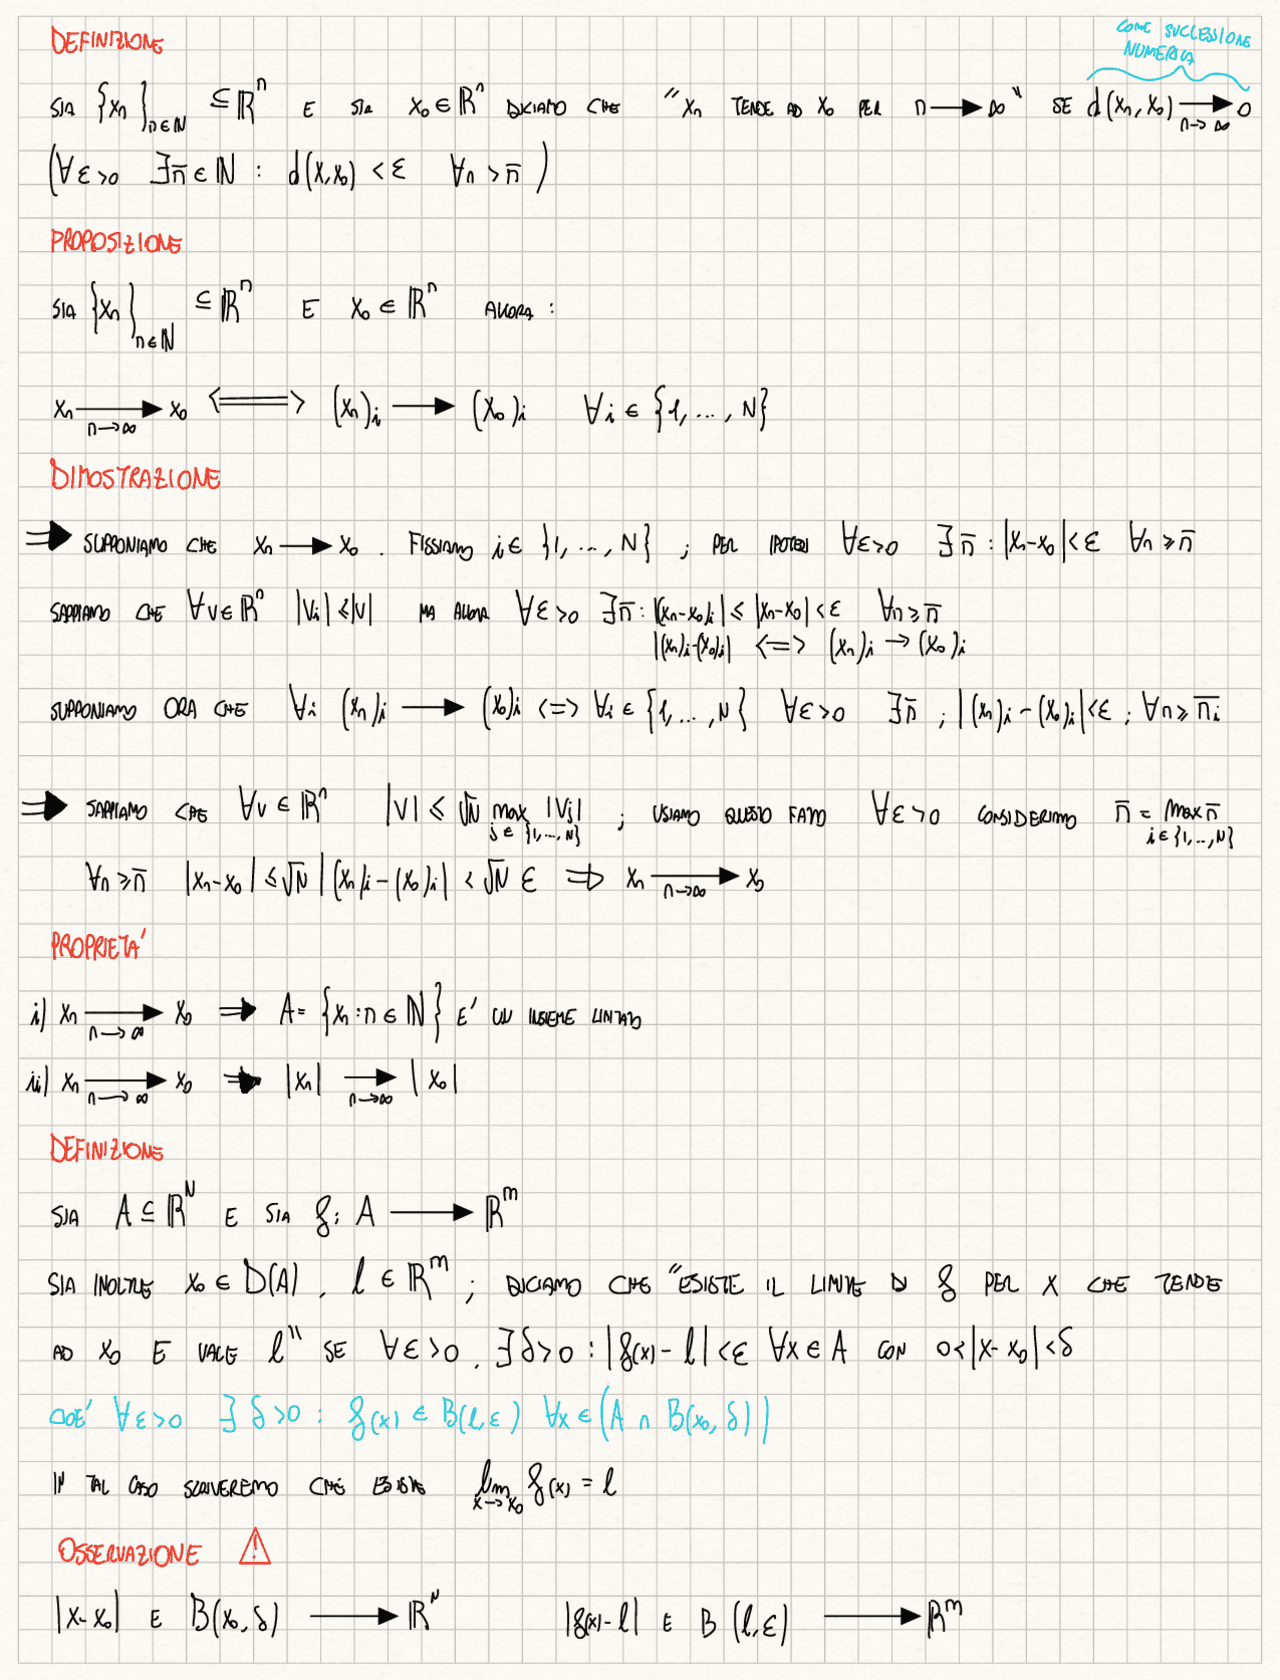 COME SUCCESSIONE
NUMERICA
DEFINIZIONE
SIA {xn}n∈ℕ ⊆ ℝⁿ E SIA x₀ ∈ ℝⁿ DICIAMO CHE "xn TENDE AD x₀ PER n → ∞" SE d(xn, x₀) →n→∞ 0
(∀ε>0 ∃n̄ ∈ ℕ : d(x,x₀) < ε ∀n > n̄)
PROPOSIZIONE
SIA {xn}n∈ℕ ⊆ ℝⁿ E x₀ ∈ ℝⁿ ALLORA :
xn →n→∞ x₀ <=> (xn)i → (x₀)i ∀i ∈ {1, ..., N}
DIMOSTRAZIONE
⇒ SUPPONIAMO CHE xn → x₀ . FISSIAMO i ∈ {1, ..., N} ; PER IPOTESI ∀ε>0 ∃n̄ : |xn-x₀| < ε ∀n ≥ n̄
SAPPIAMO CHE ∀v∈ℝⁿ |vi| ≤ |v| MA ALLORA ∀ε>0 ∃n̄ : |(xn-x₀)i| ≤ |xn-x₀| < ε ∀n ≥ n̄
|(xn)i-(x₀)i| <=> (xn)i → (x₀)i
SUPPONIAMO ORA CHE ∀i (xn)i → (x₀)i <=> ∀i ∈ {1, ..., N} ∀ε>0 ∃n̄ ; |(xn)i - (x₀)i| < ε ; ∀n ≥ n̄i
⇒ SAPPIAMO CHE ∀v ∈ ℝⁿ |v| ≤ √N max j∈{1,...,N} |vj| ; USIAMO QUESTO FATTO ∀ε>0 CONSIDERIMO n̄ = max n̄ i∈{1,...,N}
∀n ≥ n̄ |xn-x₀| ≤ √N |(xn)i - (x₀)i| < √N ε ⇒ xn →n→∞ x₀
PROPRIETA'
i) xn →n→∞ x₀ ⇒ A = {xn : n ∈ ℕ} E' UN INSIEME LIMITATO
ii) xn →n→∞ x₀ ⇒ |xn| →n→∞ |x₀|
DEFINIZIONE
SIA A ⊆ ℝᴺ E SIA f : A → ℝᵐ
SIA INOLTRE x₀ ∈ D(A) , l ∈ ℝᵐ ; DICIAMO CHE "ESISTE IL LIMITE DI f PER x CHE TENDE
AD x₀ E VALE l" SE ∀ε>0 , ∃δ>0 : |f(x) - l| < ε ∀x ∈ A CON 0 < |x-x₀| < δ
CIOE' ∀ε>0 ∃δ>0 : f(x) ∈ B(l,ε) ∀x ∈ (A ∩ B(x₀, δ))
IN TAL CASO SCRIVEREMO CHE ESISTE lim x→x₀ f(x) = l
OSSERVAZIONE ⚠
|x-x₀| E B(x₀, δ) → ℝᴺ |f(x)-l| E B (l,ε) → ℝᵐ